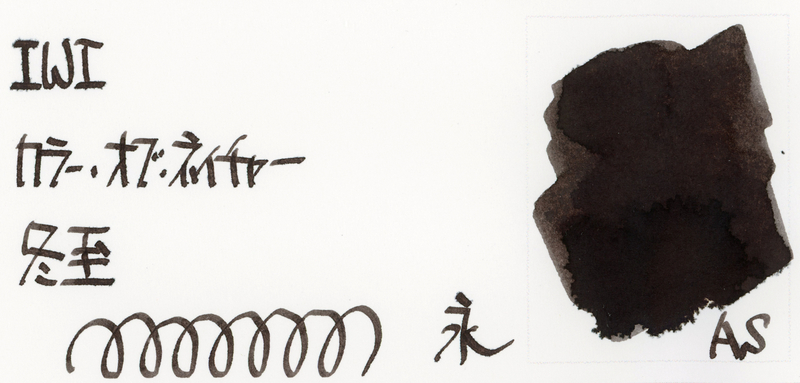 IWI
カラー・オブ・ネイチャー
冬至
永
AS